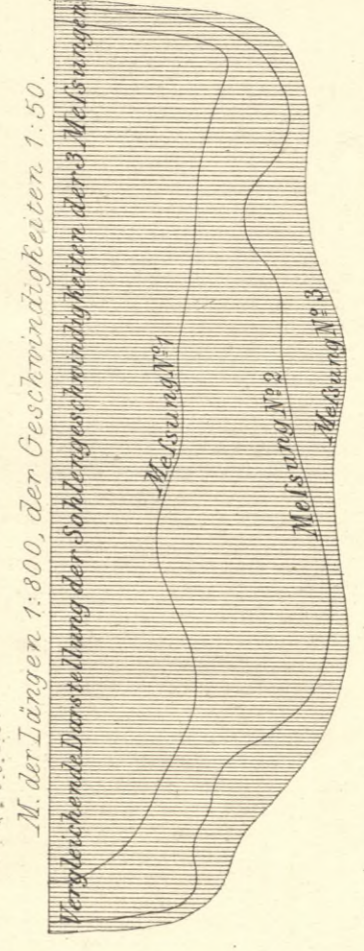 M. der Längen 1:800, der Geschwindigkeiten 1:50.
Vergleichende Darstellung der Sohlengeschwindigkeiten der 3 Meſsungen.
Meſsung Nº 1
Meſsung Nº 2
Meſsung Nº 3